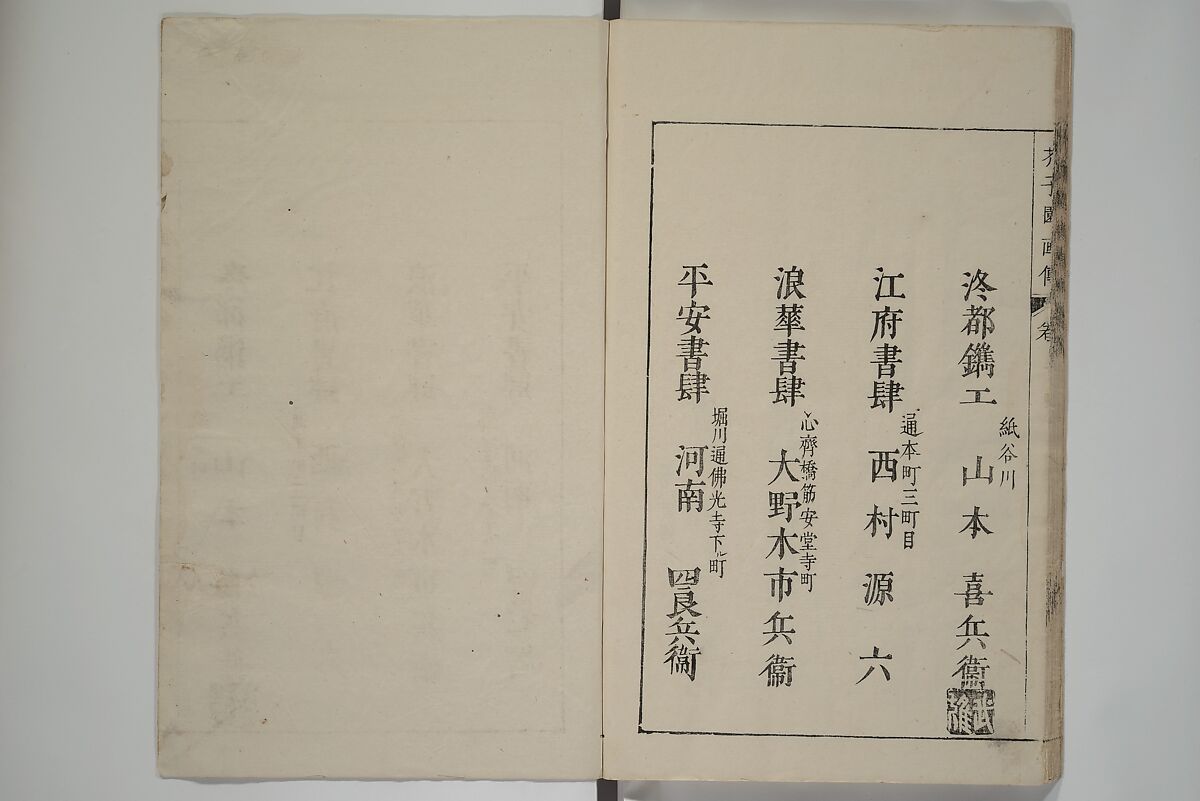 芥子園画傳 卷
紙谷川
洛都鐫工 山本 喜兵衞
通本町三町目
江府書肆 西村 源六
心齊橋筋安堂寺町
浪華書肆 大野木市兵衞
堀川通佛光寺下ル町
平安書肆 河南 四良兵衞